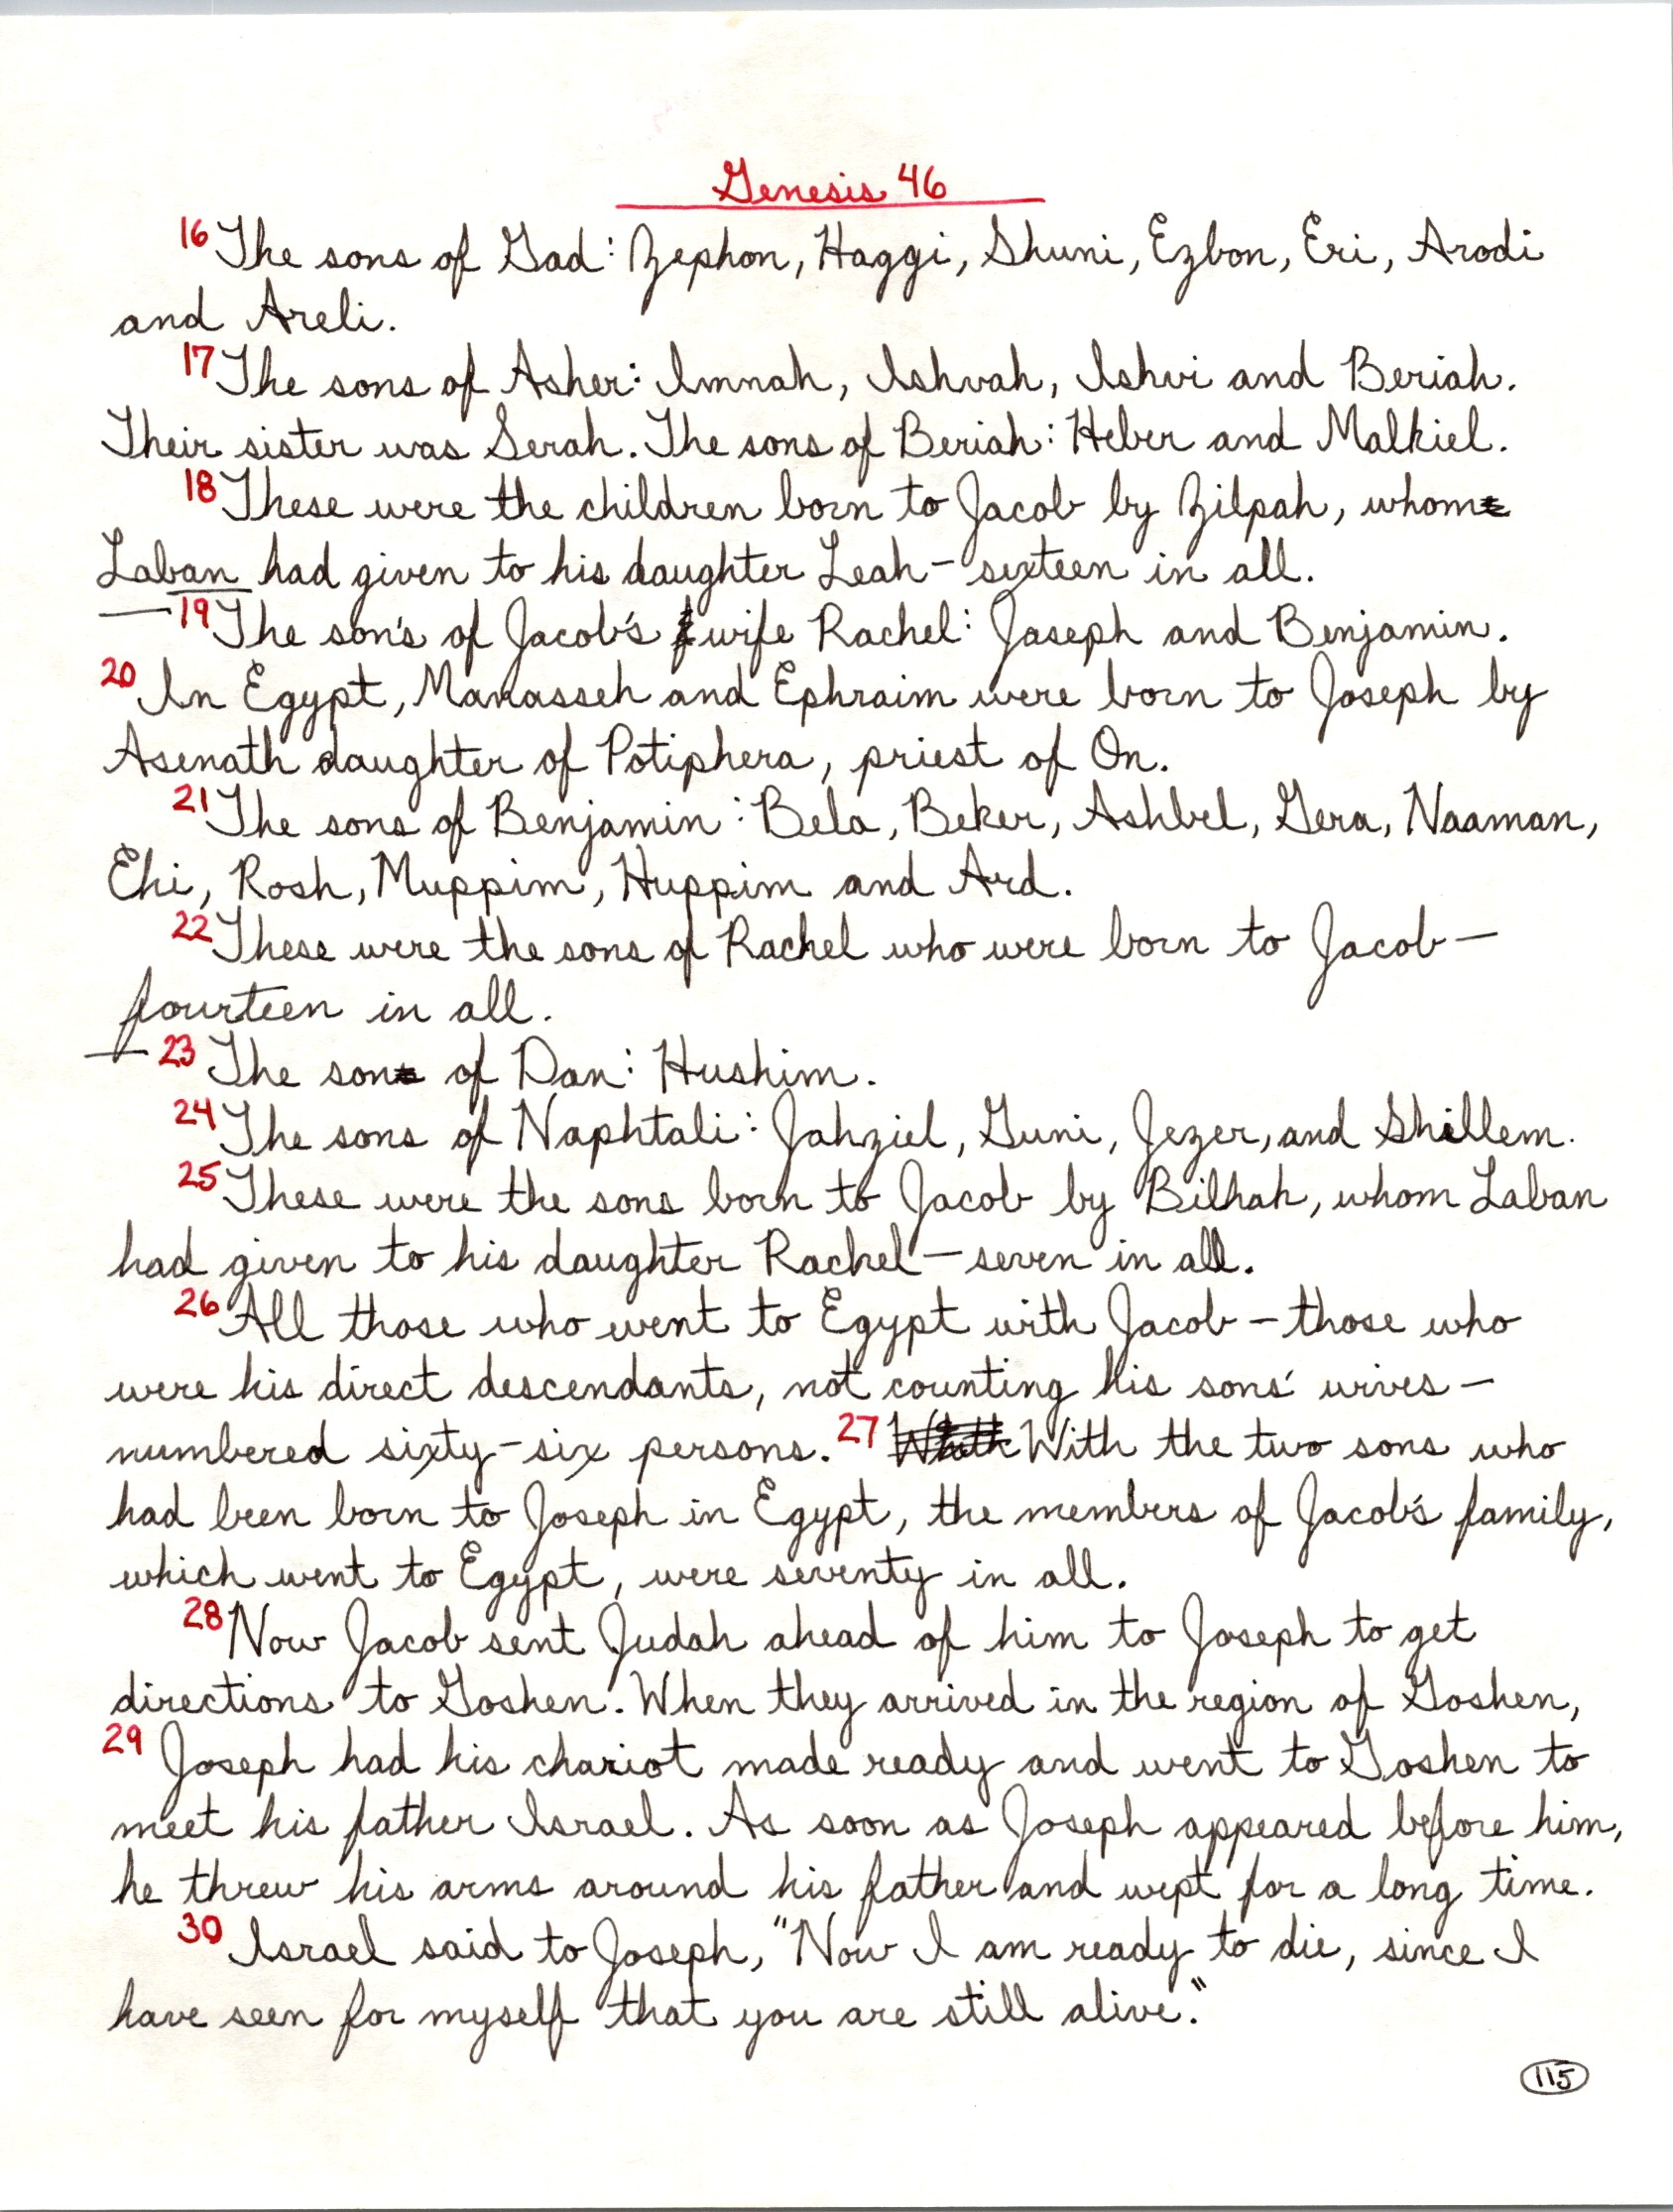 Genesis 46
16 The sons of Gad: Zephon, Haggi, Shuni, Ezbon, Eri, Arodi
and Areli.
17 The sons of Asher: Imnah, Ishvah, Ishvi and Beriah.
Their sister was Serah. The sons of Beriah: Heber and Malkiel.
18 These were the children born to Jacob by Zilpah, whom
Laban had given to his daughter Leah – sixteen in all.
19 The son's of Jacob's wife Rachel: Jaseph and Benjamin.
20 In Egypt, Manasseh and Ephraim were born to Joseph by
Asenath daughter of Potiphera, priest of On.
21 The sons of Benjamin: Bela, Beker, Ashbel, Gera, Naaman,
Ehi, Rosh, Muppim, Huppim and Ard.
22 These were the sons of Rachel who were born to Jacob –
fourteen in all.
23 The son of Dan: Hushim.
24 The sons of Naphtali: Jahziel, Guni, Jezer, and Shillem.
25 These were the sons born to Jacob by Bilhah, whom Laban
had given to his daughter Rachel – seven in all.
26 All those who went to Egypt with Jacob – those who
were his direct descendants, not counting his sons' wives –
numbered sixty-six persons. 27 With the two sons who
had been born to Joseph in Egypt, the members of Jacob's family,
which went to Egypt, were seventy in all.
28 Now Jacob sent Judah ahead of him to Joseph to get
directions to Goshen. When they arrived in the region of Goshen,
29 Joseph had his chariot made ready and went to Goshen to
meet his father Israel. As soon as Joseph appeared before him,
he threw his arms around his father and wept for a long time.
30 Israel said to Joseph, "Now I am ready to die, since I
have seen for myself that you are still alive."
115